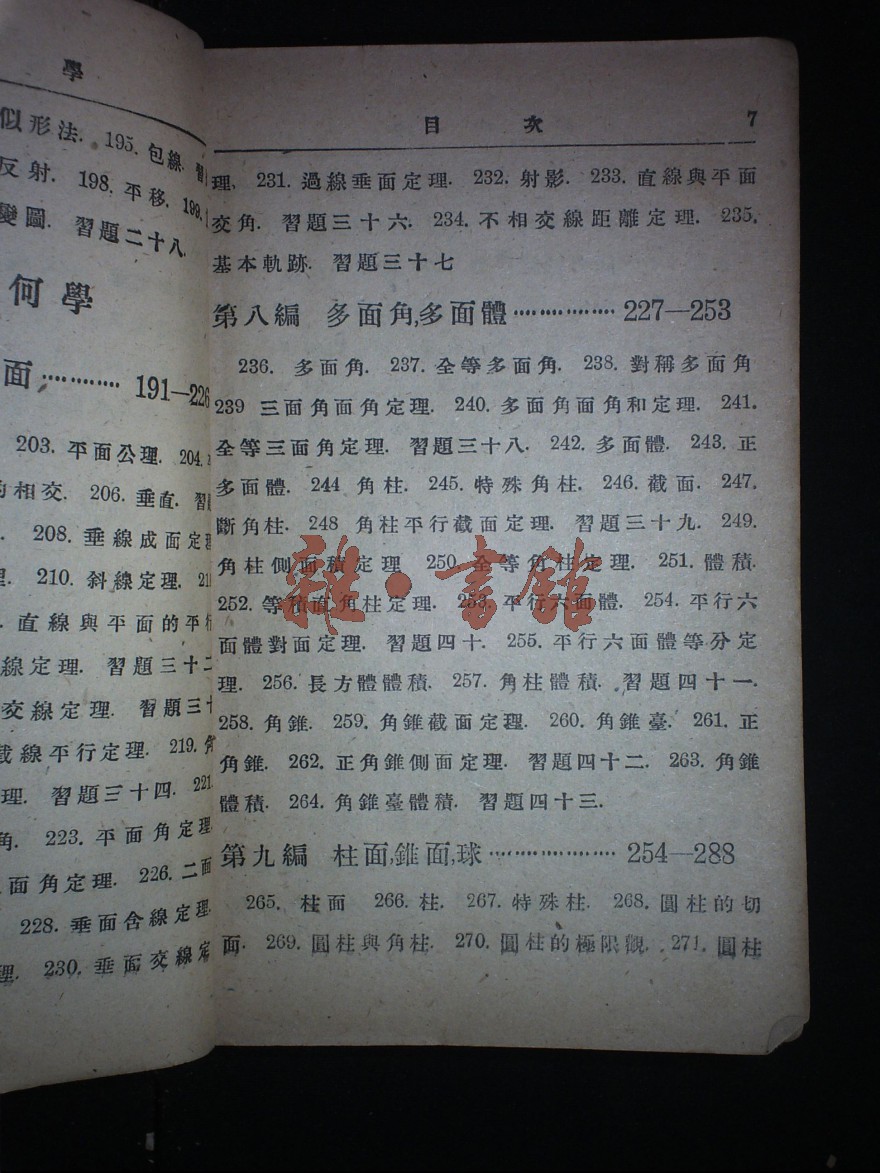 學
似形法. 195. 包線. 習
反射. 198. 平移. 199.
變圖. 習題二十八.
何學
面 ………… 191—226
203. 平面公理. 204.
的相交. 206. 垂直. 習
208. 垂線成面定理
理. 210. 斜線定理. 21
直線與平面的平行
線定理. 習題三十二
交線定理. 習題三十
截線平行定理. 219.
理. 習題三十四. 221.
角. 223. 平面角定理.
面角定理. 226. 二面
228. 垂面含線定理.
理. 230. 垂面交線定
目次 7
理. 231. 過線垂面定理. 232. 射影. 233. 直線與平面
交角. 習題三十六. 234. 不相交線距離定理. 235.
基本軌跡. 習題三十七
第八編 多面角,多面體 ……………… 227—253
236. 多面角. 237. 全等多面角. 238. 對稱多面角
239 三面角面角定理. 240. 多面角面角和定理. 241.
全等三面角定理. 習題三十八. 242. 多面體. 243. 正
多面體. 244 角柱. 245. 特殊角柱. 246. 截面. 247.
斷角柱. 248 角柱平行截面定理. 習題三十九. 249.
角柱側面積定理 250. 全等角柱定理. 251. 體積.
252. 等積直角柱定理. 253. 平行六面體. 254. 平行六
面體對面定理. 習題四十. 255. 平行六面體等分定
理. 256. 長方體體積. 257. 角柱體積. 習題四十一.
258. 角錐. 259. 角錐截面定理. 260. 角錐臺. 261. 正
角錐. 262. 正角錐側面定理. 習題四十二. 263. 角錐
體積. 264. 角錐臺體積. 習題四十三.
第九編 柱面,錐面,球 ………………… 254—288
265. 柱面 266. 柱. 267. 特殊柱. 268. 圓柱的切
面. 269. 圓柱與角柱. 270. 圓柱的極限觀. 271. 圓柱
雜·書館